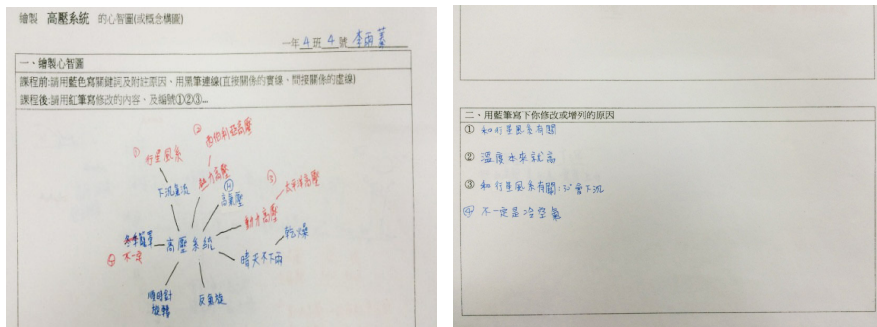 繪製 高壓系統 的心智圖(或概念構圖)
一年 4 班 4 號 李雨蓁
一、繪製心智圖
課程前:請用藍色寫關鍵詞及附註原因、用黑筆連線(直接關係的實線、間接關係的虛線)
課程後:請用紅筆寫修改的內容、及編號①②③…
② 西伯利亞高壓
① 行星風系
熱力高壓
③ 太平洋高壓
下沉氣流
④
高氣壓
動力高壓
乾燥
冬季
高壓系統
⑤ 不一定
晴天不下雨
順時針
旋轉
反氣旋
二、用藍筆寫下你修改或增列的原因
① 和行星風系有關
② 溫度
③ 和行星風系有關
會下沉
④ 不一定是冷空氣